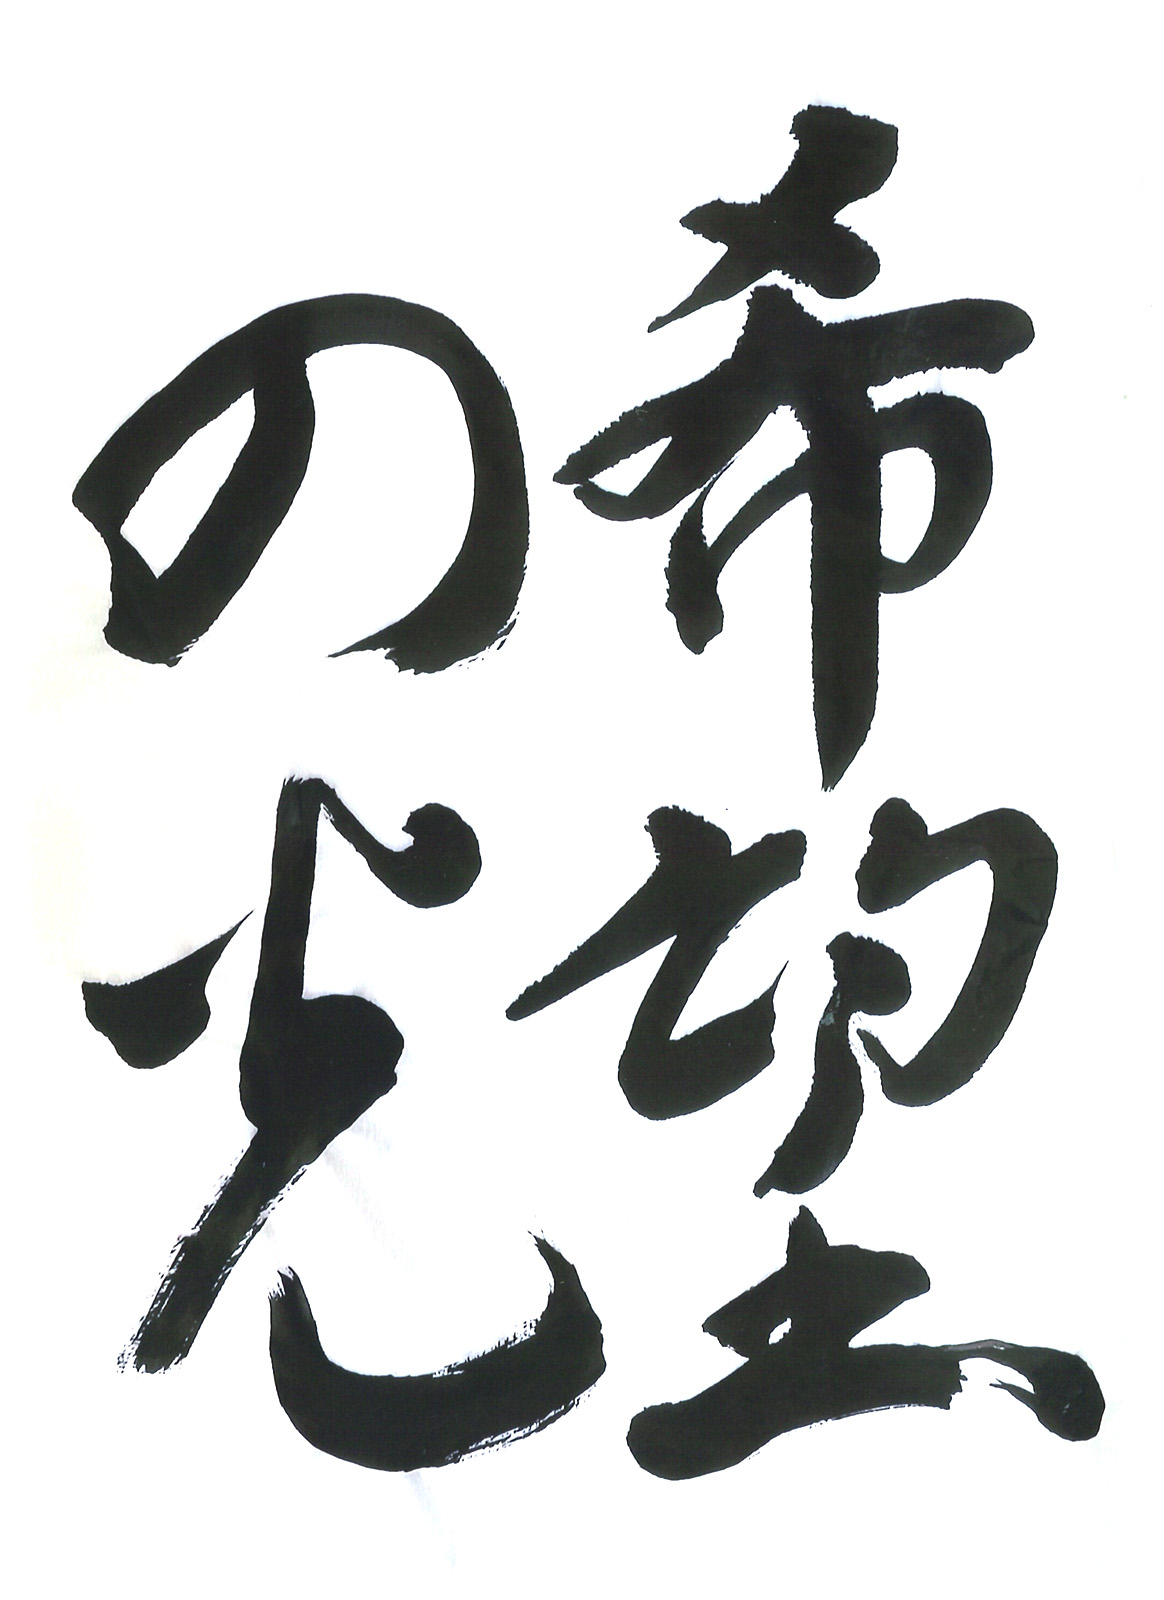 希望
の光